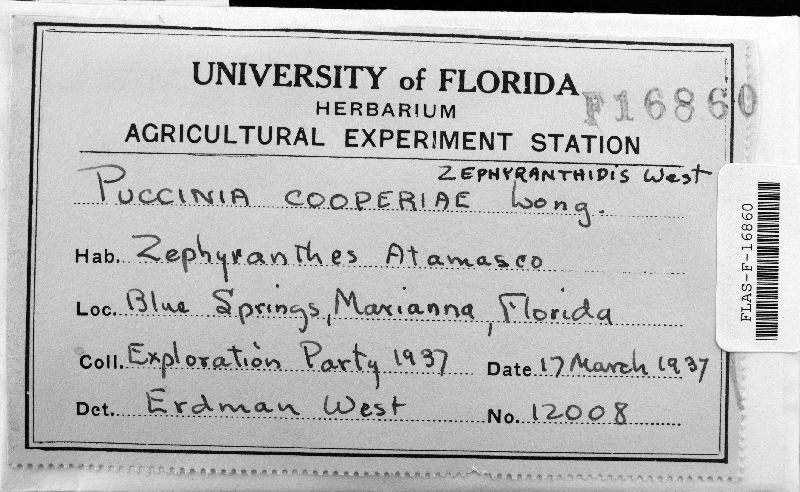 UNIVERSITY of FLORIDA
F16860
HERBARIUM
AGRICULTURAL EXPERIMENT STATION
ZEPHYRANTHIDIS West
PUCCINIA COOPERIAE Long.
Hab. Zephyranthes Atamasco
Loc. Blue Springs, Marianna, Florida
Coll. Exploration Party 1937 Date 17 March 1937
Det. Erdman West No. 12008
FLAS-F-16860